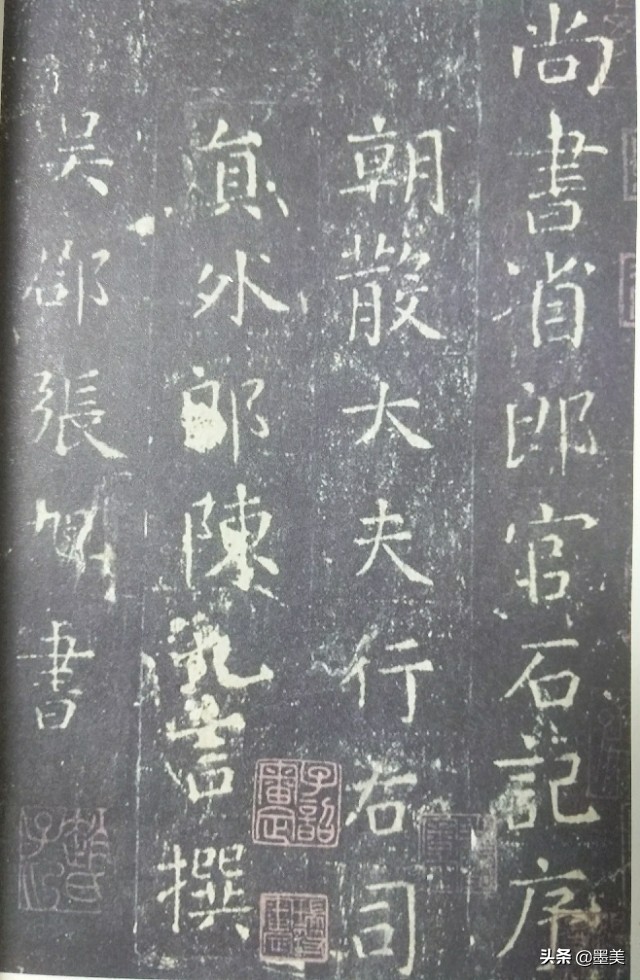 尚書省郎官石記序
朝散大夫行右司
員外郎陳九言撰
吳郡張旭書
頭条 @墨美